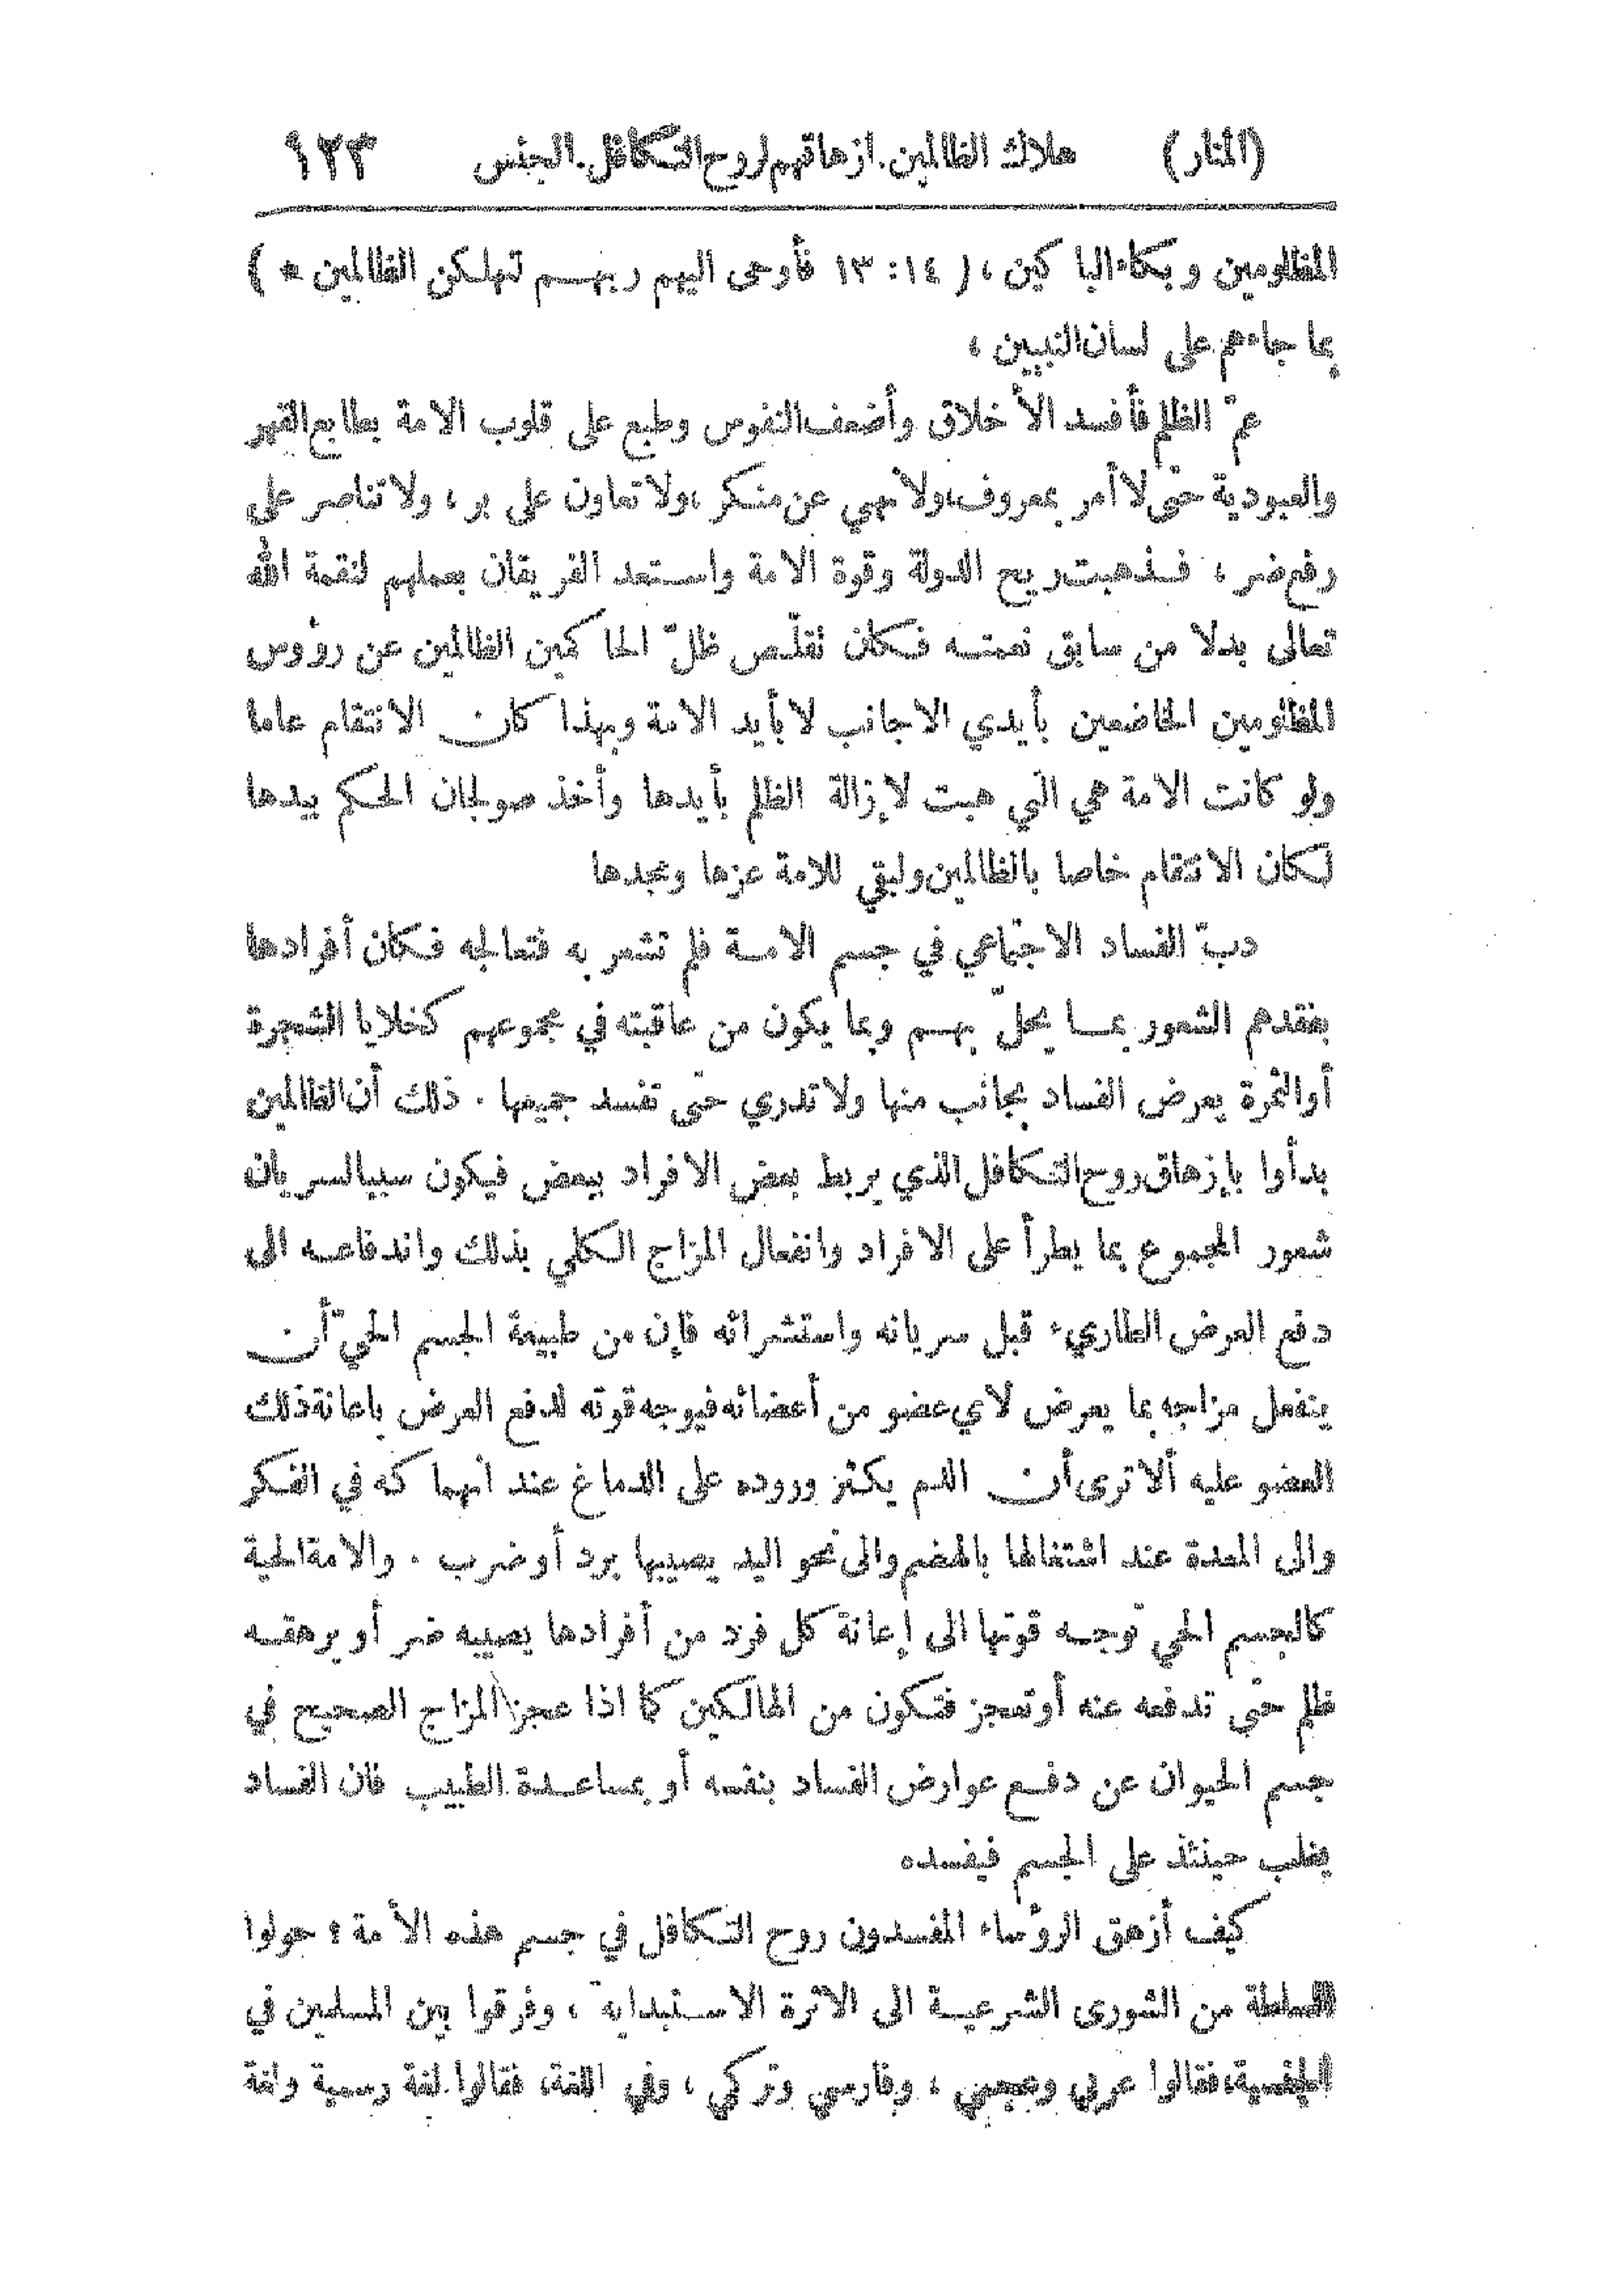 (المنار) هلاك الظالمين. ازهاقهم لروح التكافل. الجنس ١٢٣
المظلومين وبكاء الباكين، ( ١٤ : ١٣ فأوحى اليهم ربهم لنهلكن الظالمين * )
بما جاءهم على لسان النبيين ،
عمّ الظلم فأفسد الأخلاق وأضعف النفوس وطبع على قلوب الامة بطابع القهر
والعبودية حتى لا أمر بمعروف، ولا نهي عن منكر ، ولا تعاون على بر ، ولا تناصر على
رفع ضر ، فذهبت ريح الدولة وقوة الامة واستعد الفريقان بعملهم لنقمة الله
تعالى بدلا من سابق نعمته فكان تقلّص ظلّ الحاكمين الظالمين عن رؤوس
المظلومين الخاضعين بأيدي الاجانب لا بأيد الامة وبهذا كان الانتقام عاما
ولو كانت الامة هي التي هبت لإزالة الظلم بأيدها وأخذ صولجان الحكم بيدها
لكان الانتقام خاصا بالظالمين ولبقي للامة عزها ومجدها
دبّ الفساد الاجتماعي في جسم الامة فلم تشعر به فتعالجه فكان أفرادها
بفقدهم الشعور بما يحلّ بهم وبما يكون من عاقبته في مجموعهم كخلايا الشجرة
أو الثمرة يعرض الفساد بجانب منها ولا تدري حتى تفسد جميعها . ذلك أن الظالمين
بدأوا بإزهاق روح التكافل الذي يربط بعض الافراد ببعض فيكون سببا لسريان
شعور المجموع بما يطرأ على الافراد وانفعال المزاج الكلي بذلك واندفاعه الى
دفع العرض الطاريء قبل سريانه واستشرائه فإن من طبيعة الجسم الحيّ أن
ينفعل مزاجه بما يعرض لأي عضو من أعضائه فيوجه قوته لدفع العرض باعانة ذلك
العضو عليه ألا ترى أن الدم يكثر وروده على الدماغ عند انهماكه في الفكر
والى المعدة عند اشتغالها بالهضم والى نحو اليد يصيبها برد أو ضرب . والامة الحية
كالجسم الحي توجه قوتها الى إعانة كل فرد من أفرادها يصيبه ضر أو يرهقه
ظلم حتى تدفعه عنه أو تعجز فتكون من الهالكين كما اذا عجز المزاج الصحيح في
جسم الحيوان عن دفع عوارض الفساد بنفسه أو بمساعدة الطبيب فان الفساد
يغلب حينئذ على الجسم فيفسده
كيف أزهق الرؤساء المفسدون روح التكافل في جسم هذه الأمة ؟ حولوا
السلطة من الشورى الشرعية الى الاثرة الاستبدايه ، وفرقوا بين المسلمين في
الجنسية، فقالوا عربي وعجمي ، وفارسي وتركي ، وفي اللغة، فقالوا لغة رسمية ولغة